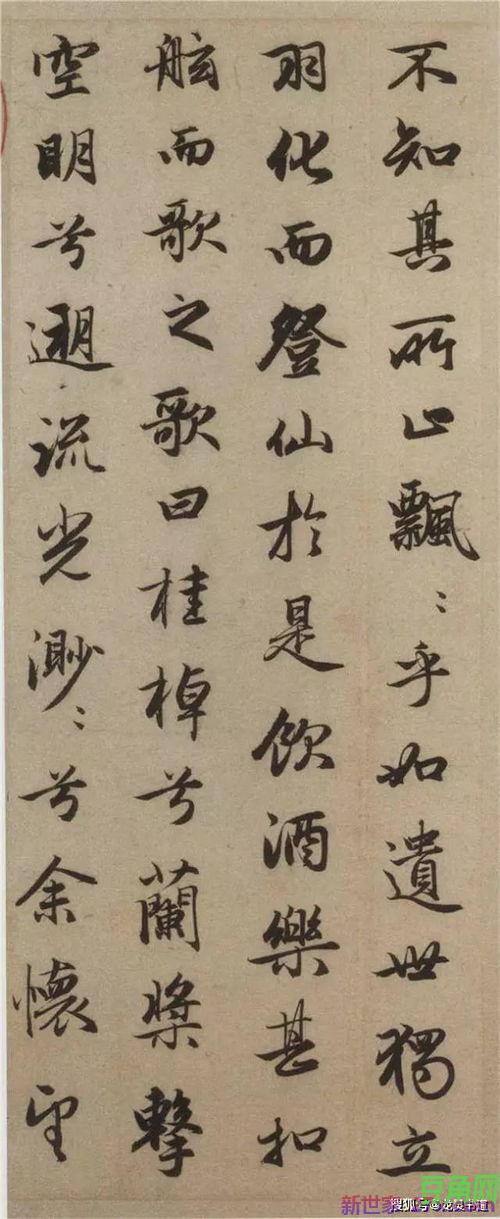 不知其所止飄〻乎如遺世獨立
羽化而登仙於是飲酒樂甚扣
舷而歌之歌曰桂棹兮蘭槳擊
空明兮遡流光渺〻兮余懷望
搜狐号@
新世家
豆角网